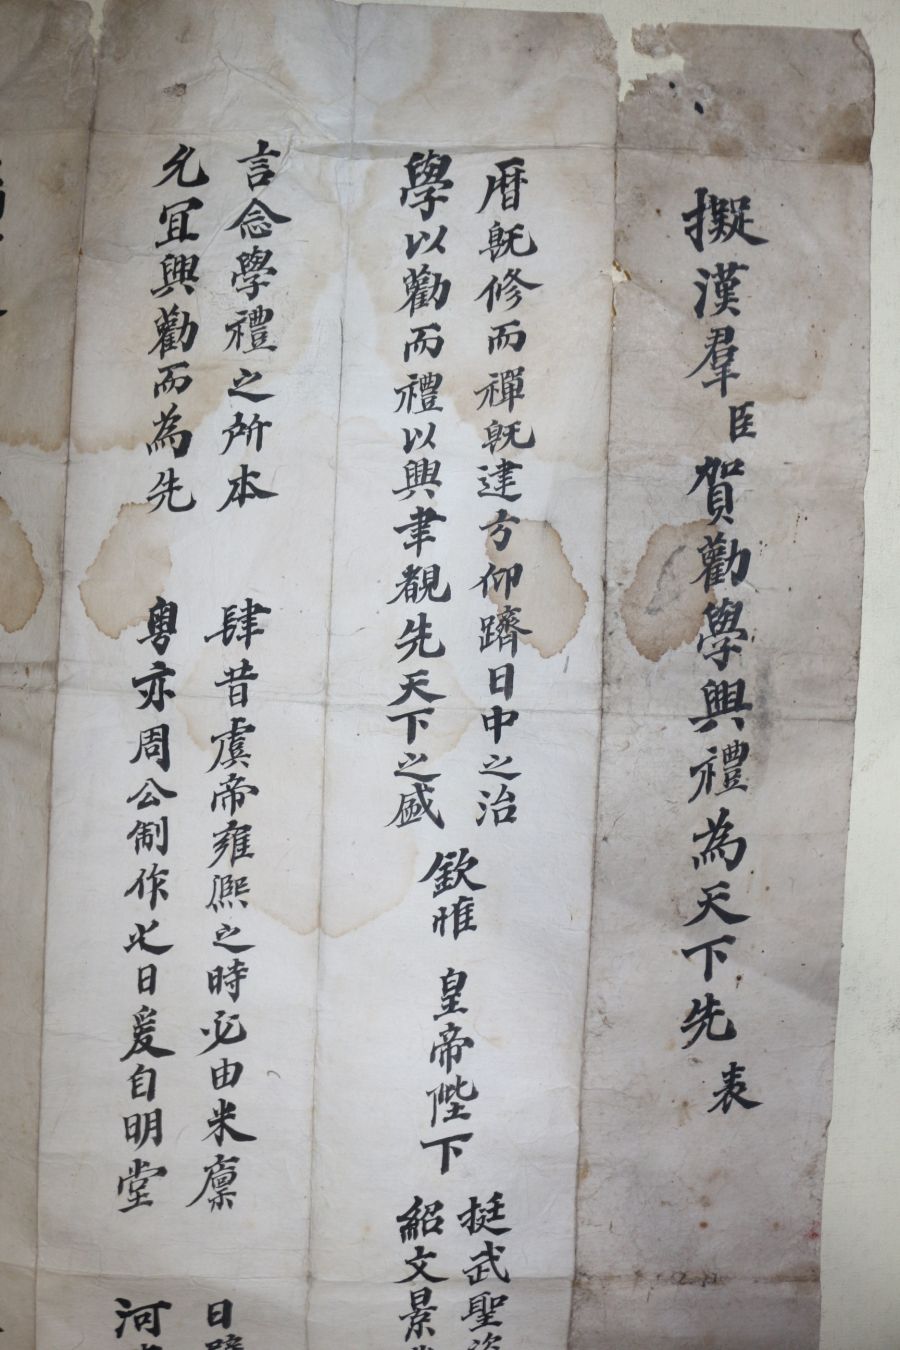 擬漢羣臣賀勸學興禮為天下先表
曆旣修而禪旣建方仰躋日中之治
學以勸而禮以興聿覩先天下之盛
欽惟皇帝陛下
挺武聖姿
紹文景
言念學禮之所本
允宜興勸而為先
肆昔虞帝雍熙之時必由米廪
粤亦周公制作之日爰自明堂
日
河